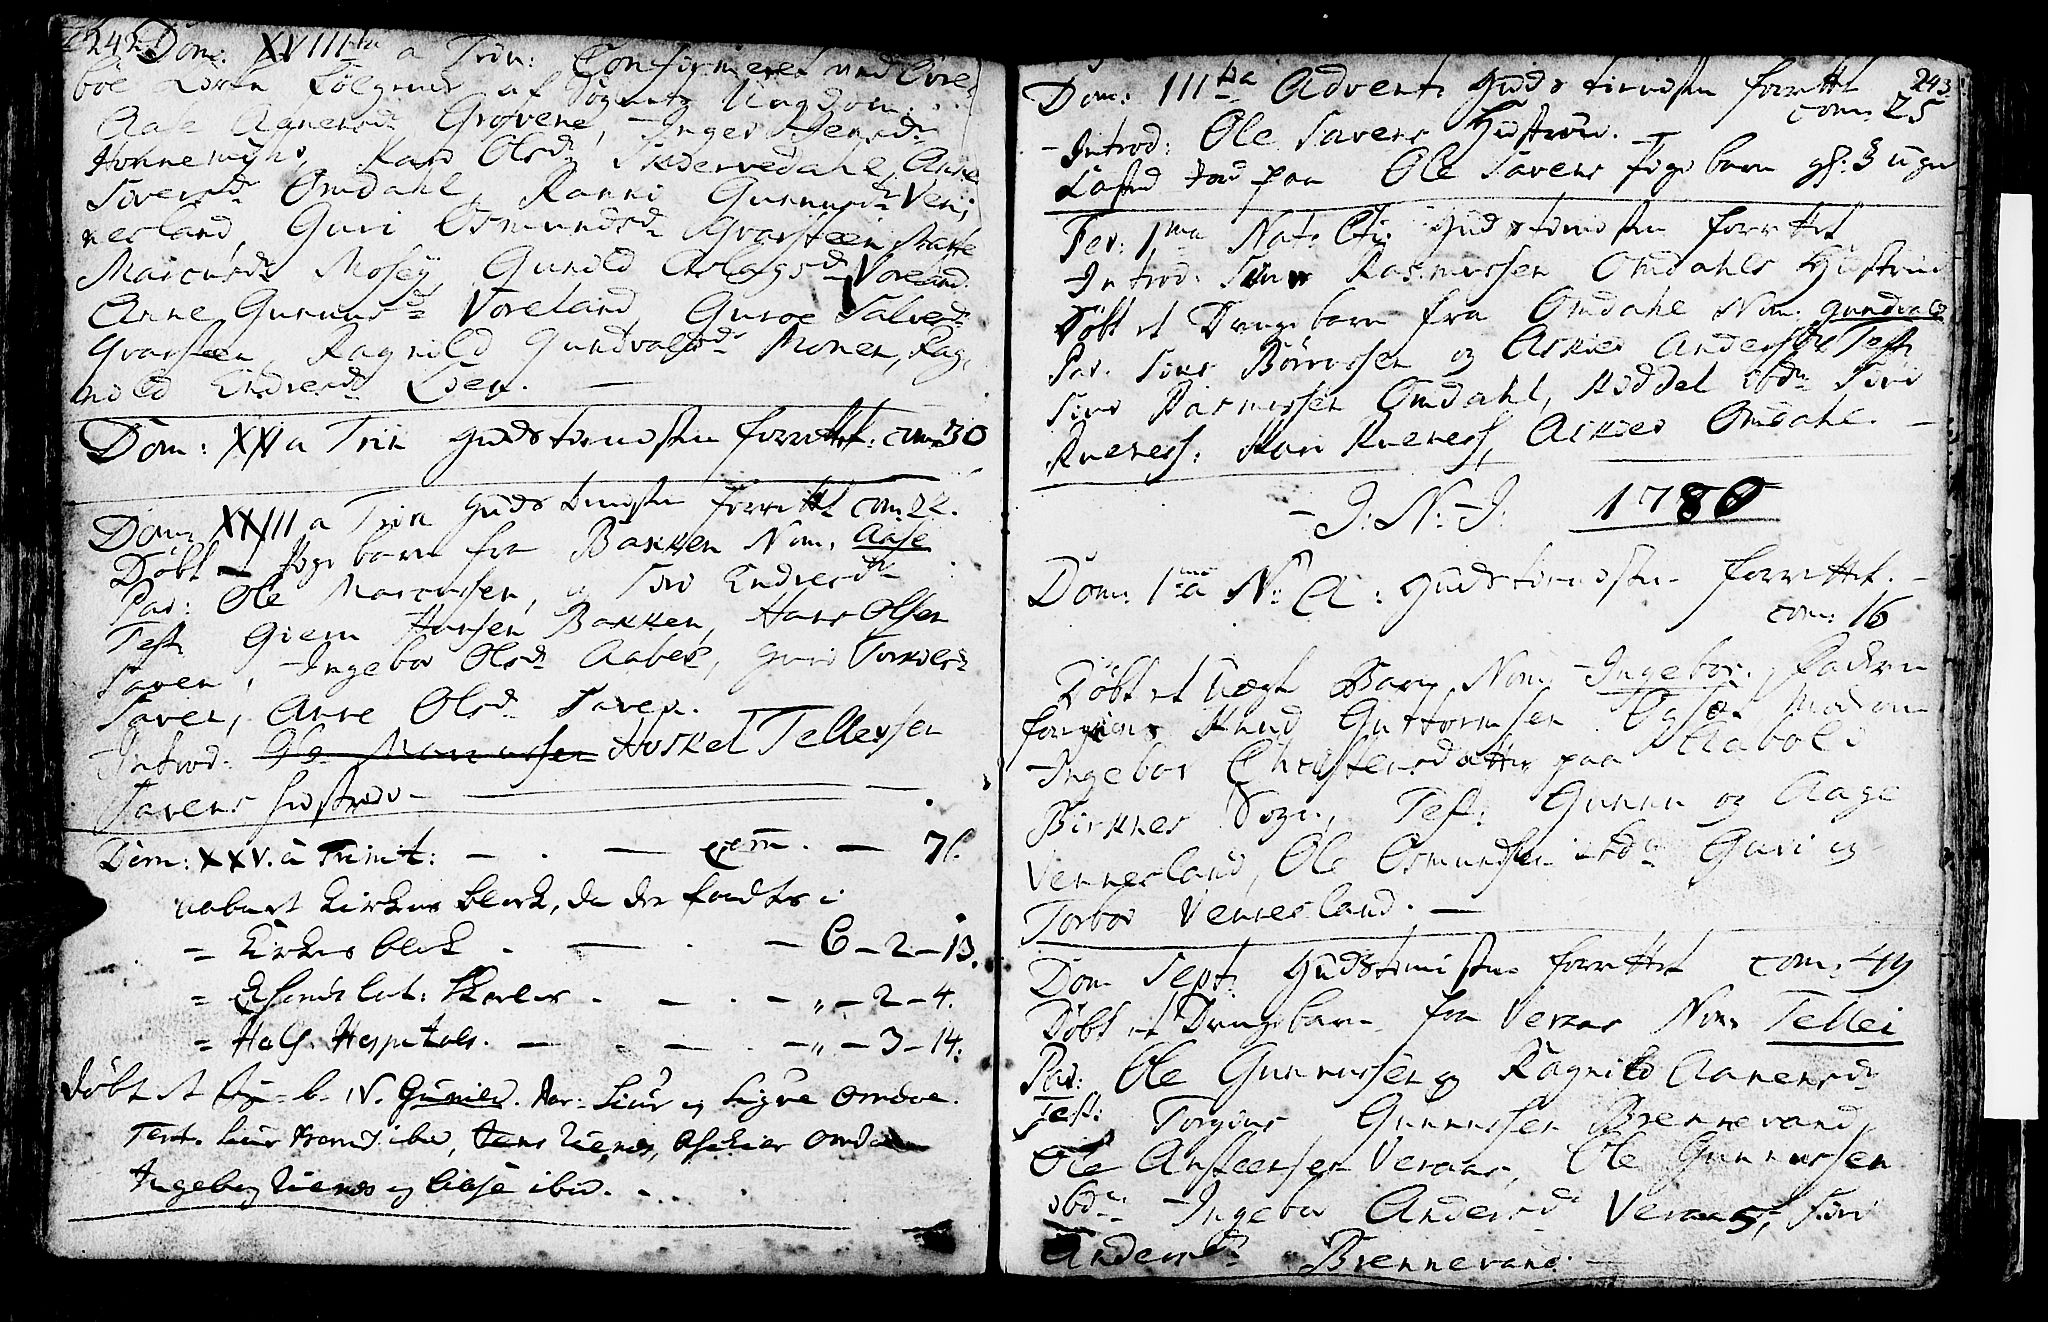 242 Dom: XVIIIda a Trin: Confirmeret ved Øvre
boe Kirke følgende af Sognets Ungdom:
Aase Aanensdr Grovene, Inger Jensdr
Honnemyhr, Kari Olsdr Sudervedahl, Anne
Siversdr Omdahl, Ranni Gunnersdr Ven;
nesland, Guri Osmundsdr Qvarsteen, Marte
Marcusdr Mosey, Gunild Aslagsdr Voreland
Anne Gunnersdr Voreland, Guroe Salvesdr
Qvarsteen, Ragnild Gundvalsdr Monen, Rag,
nild Endresdr Lien.
Dom: XXI a Trin Gudstienesten forrettet: com: 30
Dom: XXIII a Trin Gudstienesten forrettet com: 24.
Døbt et Pigebarn fra Bakken Nom: Aase
Par: Ole Marcussen, og Siri Endresdr
Test: Giern Hansen Bakken, Hans Olsen
Saven, Ingebor Olsdr Aabel, Guri Torkiersdr
Saven, Anne Olsdr Saven.
Introd: Ole Marcussen Hoskel Tellefsen
Savens Hustrue
Dom: XXV. a Trinit: — com. — 76.
aabnet Kirkens blok, da der fandtes i
= Kirkens blok — 6-2-13.
= Skoler — „-2-4.
= Hals Hospitals — „-3-14:
Døbt et Pige-b. N. Gunild. Par: Siur og Sigre Omdal.
Test. Siur ibid,
Ingeborg og Aase ibid.
243
Dom: IIItia Advent: Gudstienesten forrettet
com: 25
Introd: Ole Savens Hustrue.
Kasted Jord paa Ole Savens Pigebarn gl: 3 uger
Fer: 1ma Nat: Cti: Gudstienesten forrettet
Introd: Siur Rasmussen Omdahls Hustrue
Døbt et Drengebarn fra Omdahl Nom: Gundvald
Par: Siur Rasmussen og Askier Andersdr Test:
Siur Rasmussen Omdahl, Hoddel ibdm Siri
Kueness: Mari Kueness, Askier Omdahl.
J: N: J: 1780
Dom: 1ma a N: A: Gudstienesten forrettet.
com: 16
Døbt et Uægte Barn Nom: Ingebor, Faderen
foregives Knud Guttormsen Moderen
Ingebor Christensdatter paa Aabold
Birknes Sogn, Test: Gunnu og Aage
Vennesland, Ole Osmundsen ibdm Guri og
Torbor Vennesland.
Dom Sept: Gudstienesten forrettet com: 49
Døbt et Drengebarn fra Veraas Nom: Tellei
Par: Ole Gunnussen og Ragnild Aanensdr
Test: Torgius Gunnussen Brennevand,
Ole Ansteensen Veraas, Ole Gunnussen
ibdm Ingebor Andersdr Veraas, Siri
Andersdr Brennevand.